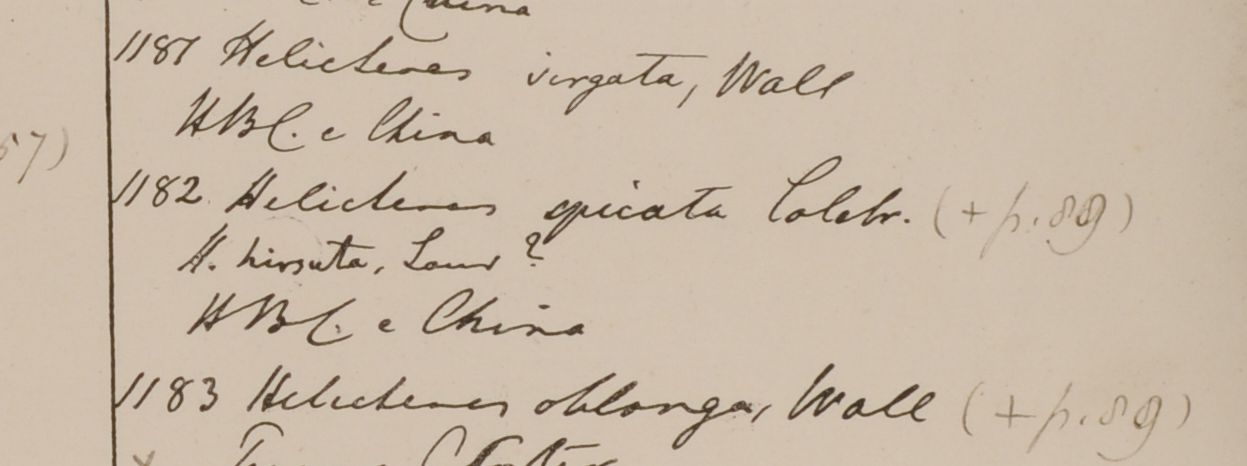 China
1181 Helicteres virgata, Wall
HBC. e China
57)
1182 Helicteres spicata Colebr. (+ p. 89)
H. hirsuta, Lour ?
HBC. e China
1183 Helicteres oblonga, Wall (+ p. 89)